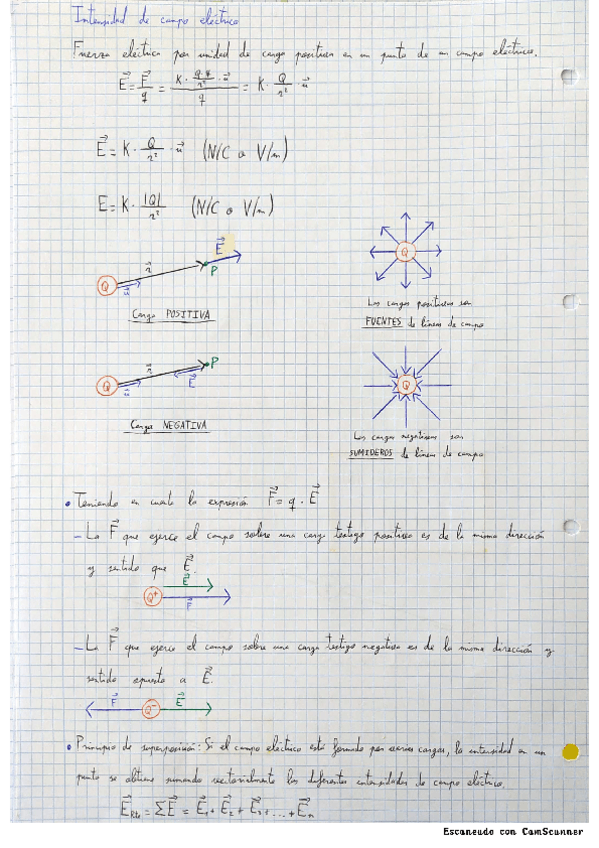 Intensidad de campo eléctrico
Fuerza eléctrica por unidad de carga positiva en un punto de un campo eléctrico.
E⃗ = F⃗/q = (K · (Q·q/r²) · u⃗)/q = K · Q/r² · u⃗
E⃗ = K · Q/r² · u⃗ (N/C o V/m)
E = K · |Q|/r² (N/C o V/m)
Q u⃗ r⃗ P E⃗
Carga POSITIVA
Q
Las cargas positivas son
FUENTES de líneas de campo
Q u⃗ r⃗ E⃗ P
Carga NEGATIVA
Q
Las cargas negativas son
SUMIDEROS de líneas de campo
• Teniendo en cuenta la expresión F⃗ = q · E⃗
- La F⃗ que ejerce el campo sobre una carga testigo positiva es de la misma dirección
y sentido que E⃗.
Q⁺ E⃗ F⃗
- La F⃗ que ejerce el campo sobre una carga testigo negativa es de la misma dirección y
sentido opuesto a E⃗.
F⃗ Q⁻ E⃗
• Principio de superposición: Si el campo eléctrico está formado por varias cargas, la intensidad en un
punto se obtiene sumando vectorialmente las diferentes intensidades de campo eléctrico.
E⃗Rta = ΣE⃗ = E⃗₁ + E⃗₂ + E⃗₃ + ... + E⃗n
Escaneado con CamScanner